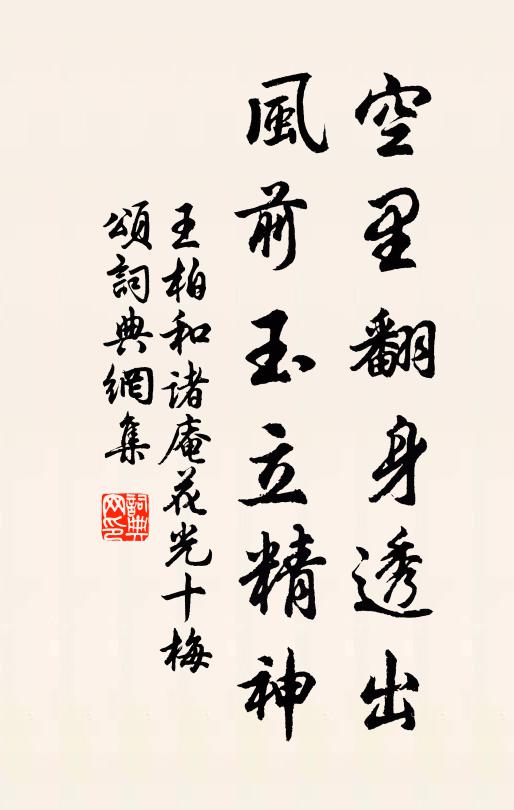 空里翻身透出
風前玉立精神
王柏和诸庵花光十梅
頌詞典網集
詞典网印